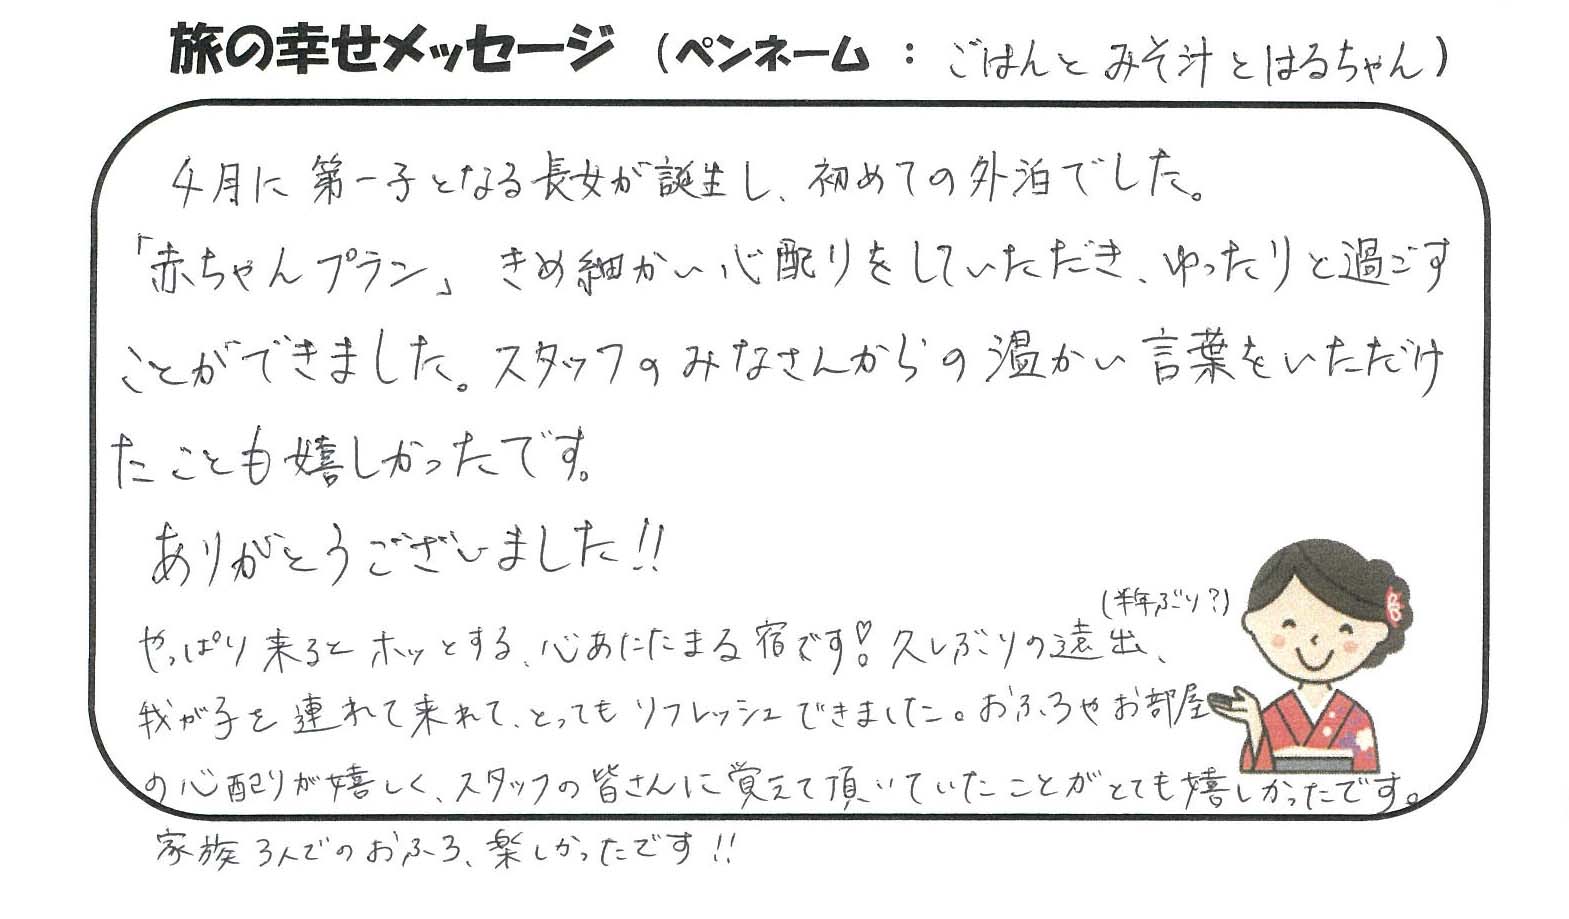 旅の幸せメッセージ （ペンネーム ： ごはんと みそ汁 とはるちゃん）
4月に 第一子となる長女が誕生し、初めての外泊でした。
「赤ちゃんプラン」 きめ細かい心配りをしていただき、ゆったりと過ごす
ことができました。スタッフのみなさんからの温かい言葉をいただけ
たことも嬉しかったです。
ありがとうございました!!
(半年ぶり?)
やっぱり来るとホッとする、心あたたまる宿です♡! 久しぶりの遠出、
我が子を連れて来れて、とってもリフレッシュできました。おふろやお部屋
の心配りが嬉しく、スタッフの皆さんに覚えて頂いていたことがとても嬉しかったです。
家族3人でのおふろ、楽しかったです!!